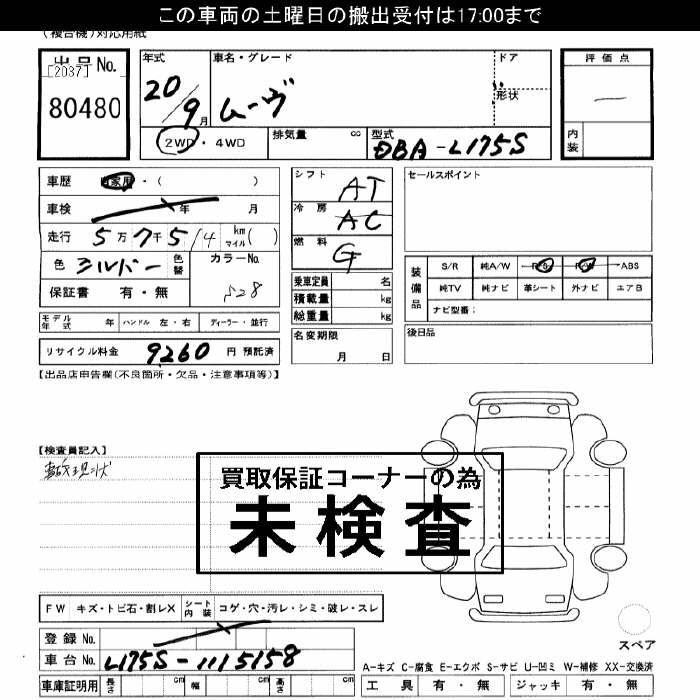 この車両の土曜日の搬出受付は17:00まで
(複合機)対応用紙
出品No.
[2037]
80480
年式
20/9月
車名・グレード
ムーヴ
ドア
形状
評価点
内装
2WD・4WD
排気量 cc
型式 DBA-L175S
車歴 自家用・( )
車検 年 月
走行 5万7千5/4 km マイル( )
色 シルバー 色替
カラーNo. S28
保証書 有・無
モデル年式 年 ハンドル 左・右 ディーラー・並行
リサイクル料金 9260 円 預託済
シフト AT
冷房 AC
燃料 G
乗車定員 名
積載量 kg
総重量 kg
名変期限
月 日
セールスポイント
装備品
S/R 純A/W P/S P/W ABS
純TV 純ナビ 革シート 外ナビ エアB
ナビ型番:
後日品
【出品店申告欄(不良箇所・欠品・注意事項等)】
【検査員記入】
買取保証コーナーの為
未検査
FW キズ・トビ石・割レX シート内装 コゲ・穴・汚レ・シミ・破レ・スレ
登録No.
車台No. L175S-1115158
車庫証明用 長さ cm 幅 cm 高さ cm
スペア
A-キズ C-腐食 E-エクボ S-サビ U-凹ミ W-補修 XX-交換済
工具 有・無 ジャッキ 有・無